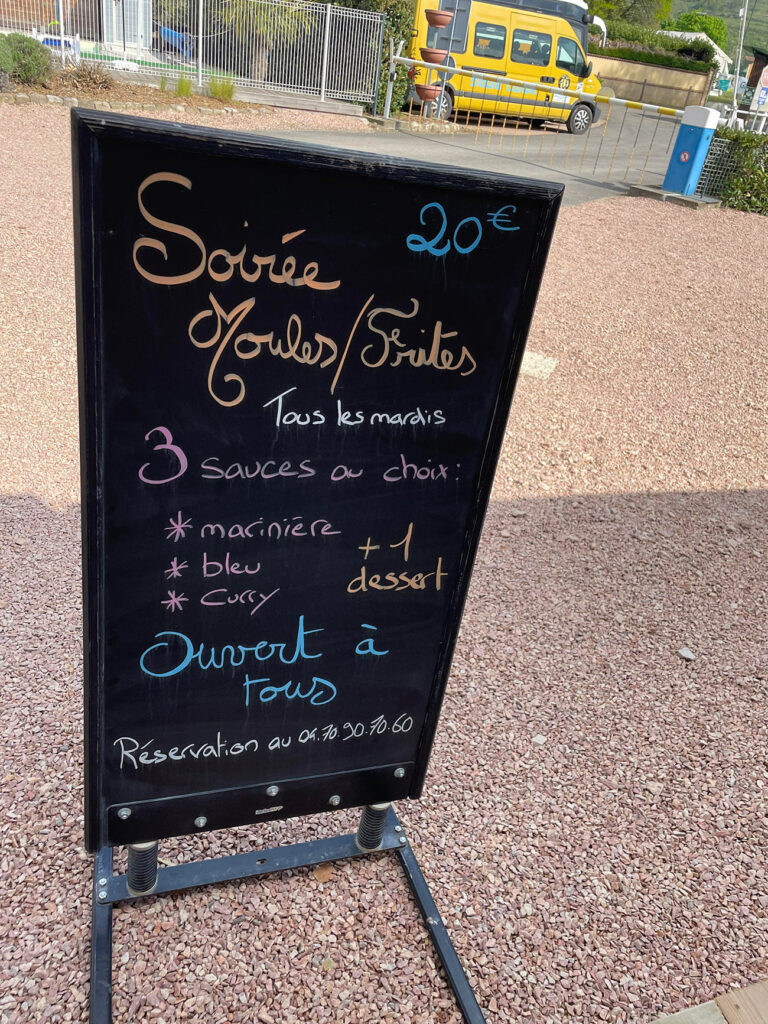 20€
Soirée
Moules/Frites
Tous les mardis
3 sauces au choix:
* marinière
* bleu
* curry
+ 1
dessert
Ouvert à
tous
Réservation au 04.70.90.70.60